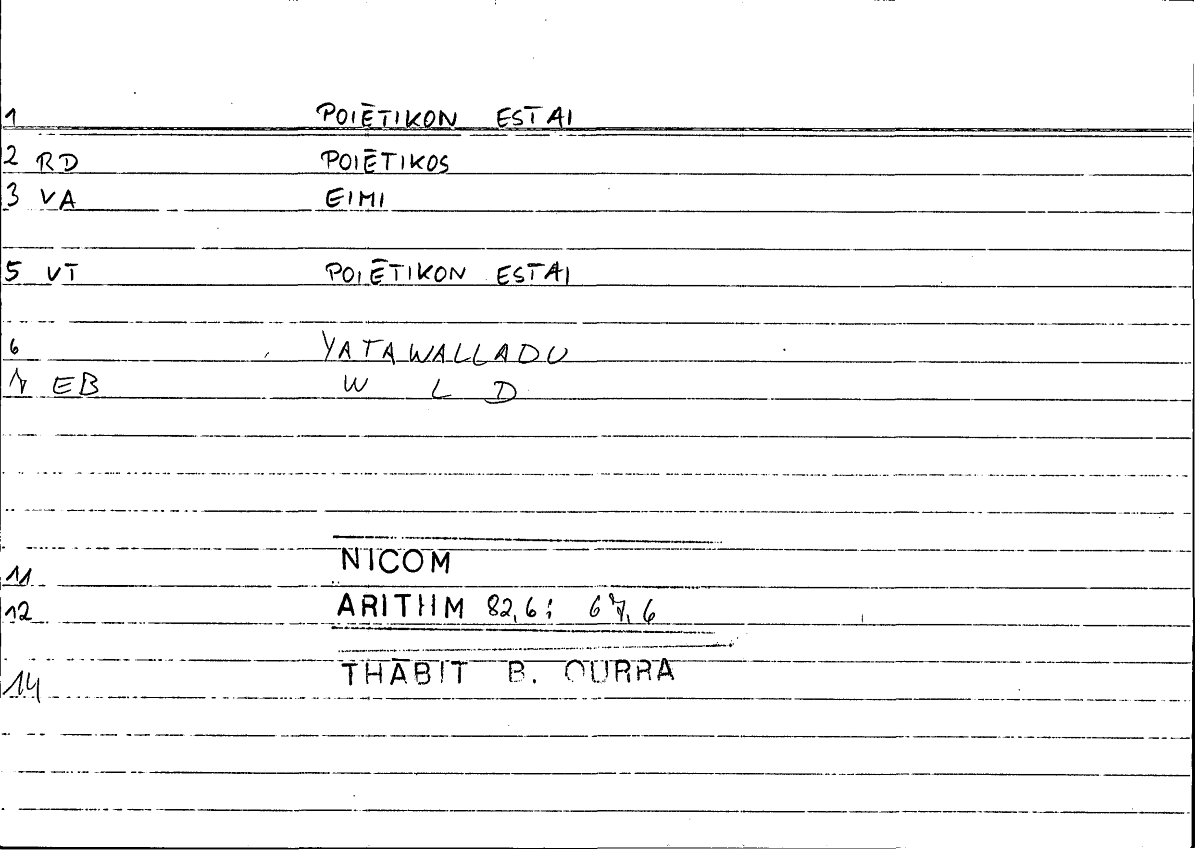 1 POIĒTIKON ESTAI
2 RD POIĒTIKOS
3 VA EIMI
5 VT POIĒTIKON ESTAI
6 YATAWALLADU
7 EB W L D
NICOM
11
12 ARITHM 82,6; 67,6
THĀBIT B. QURRA
14